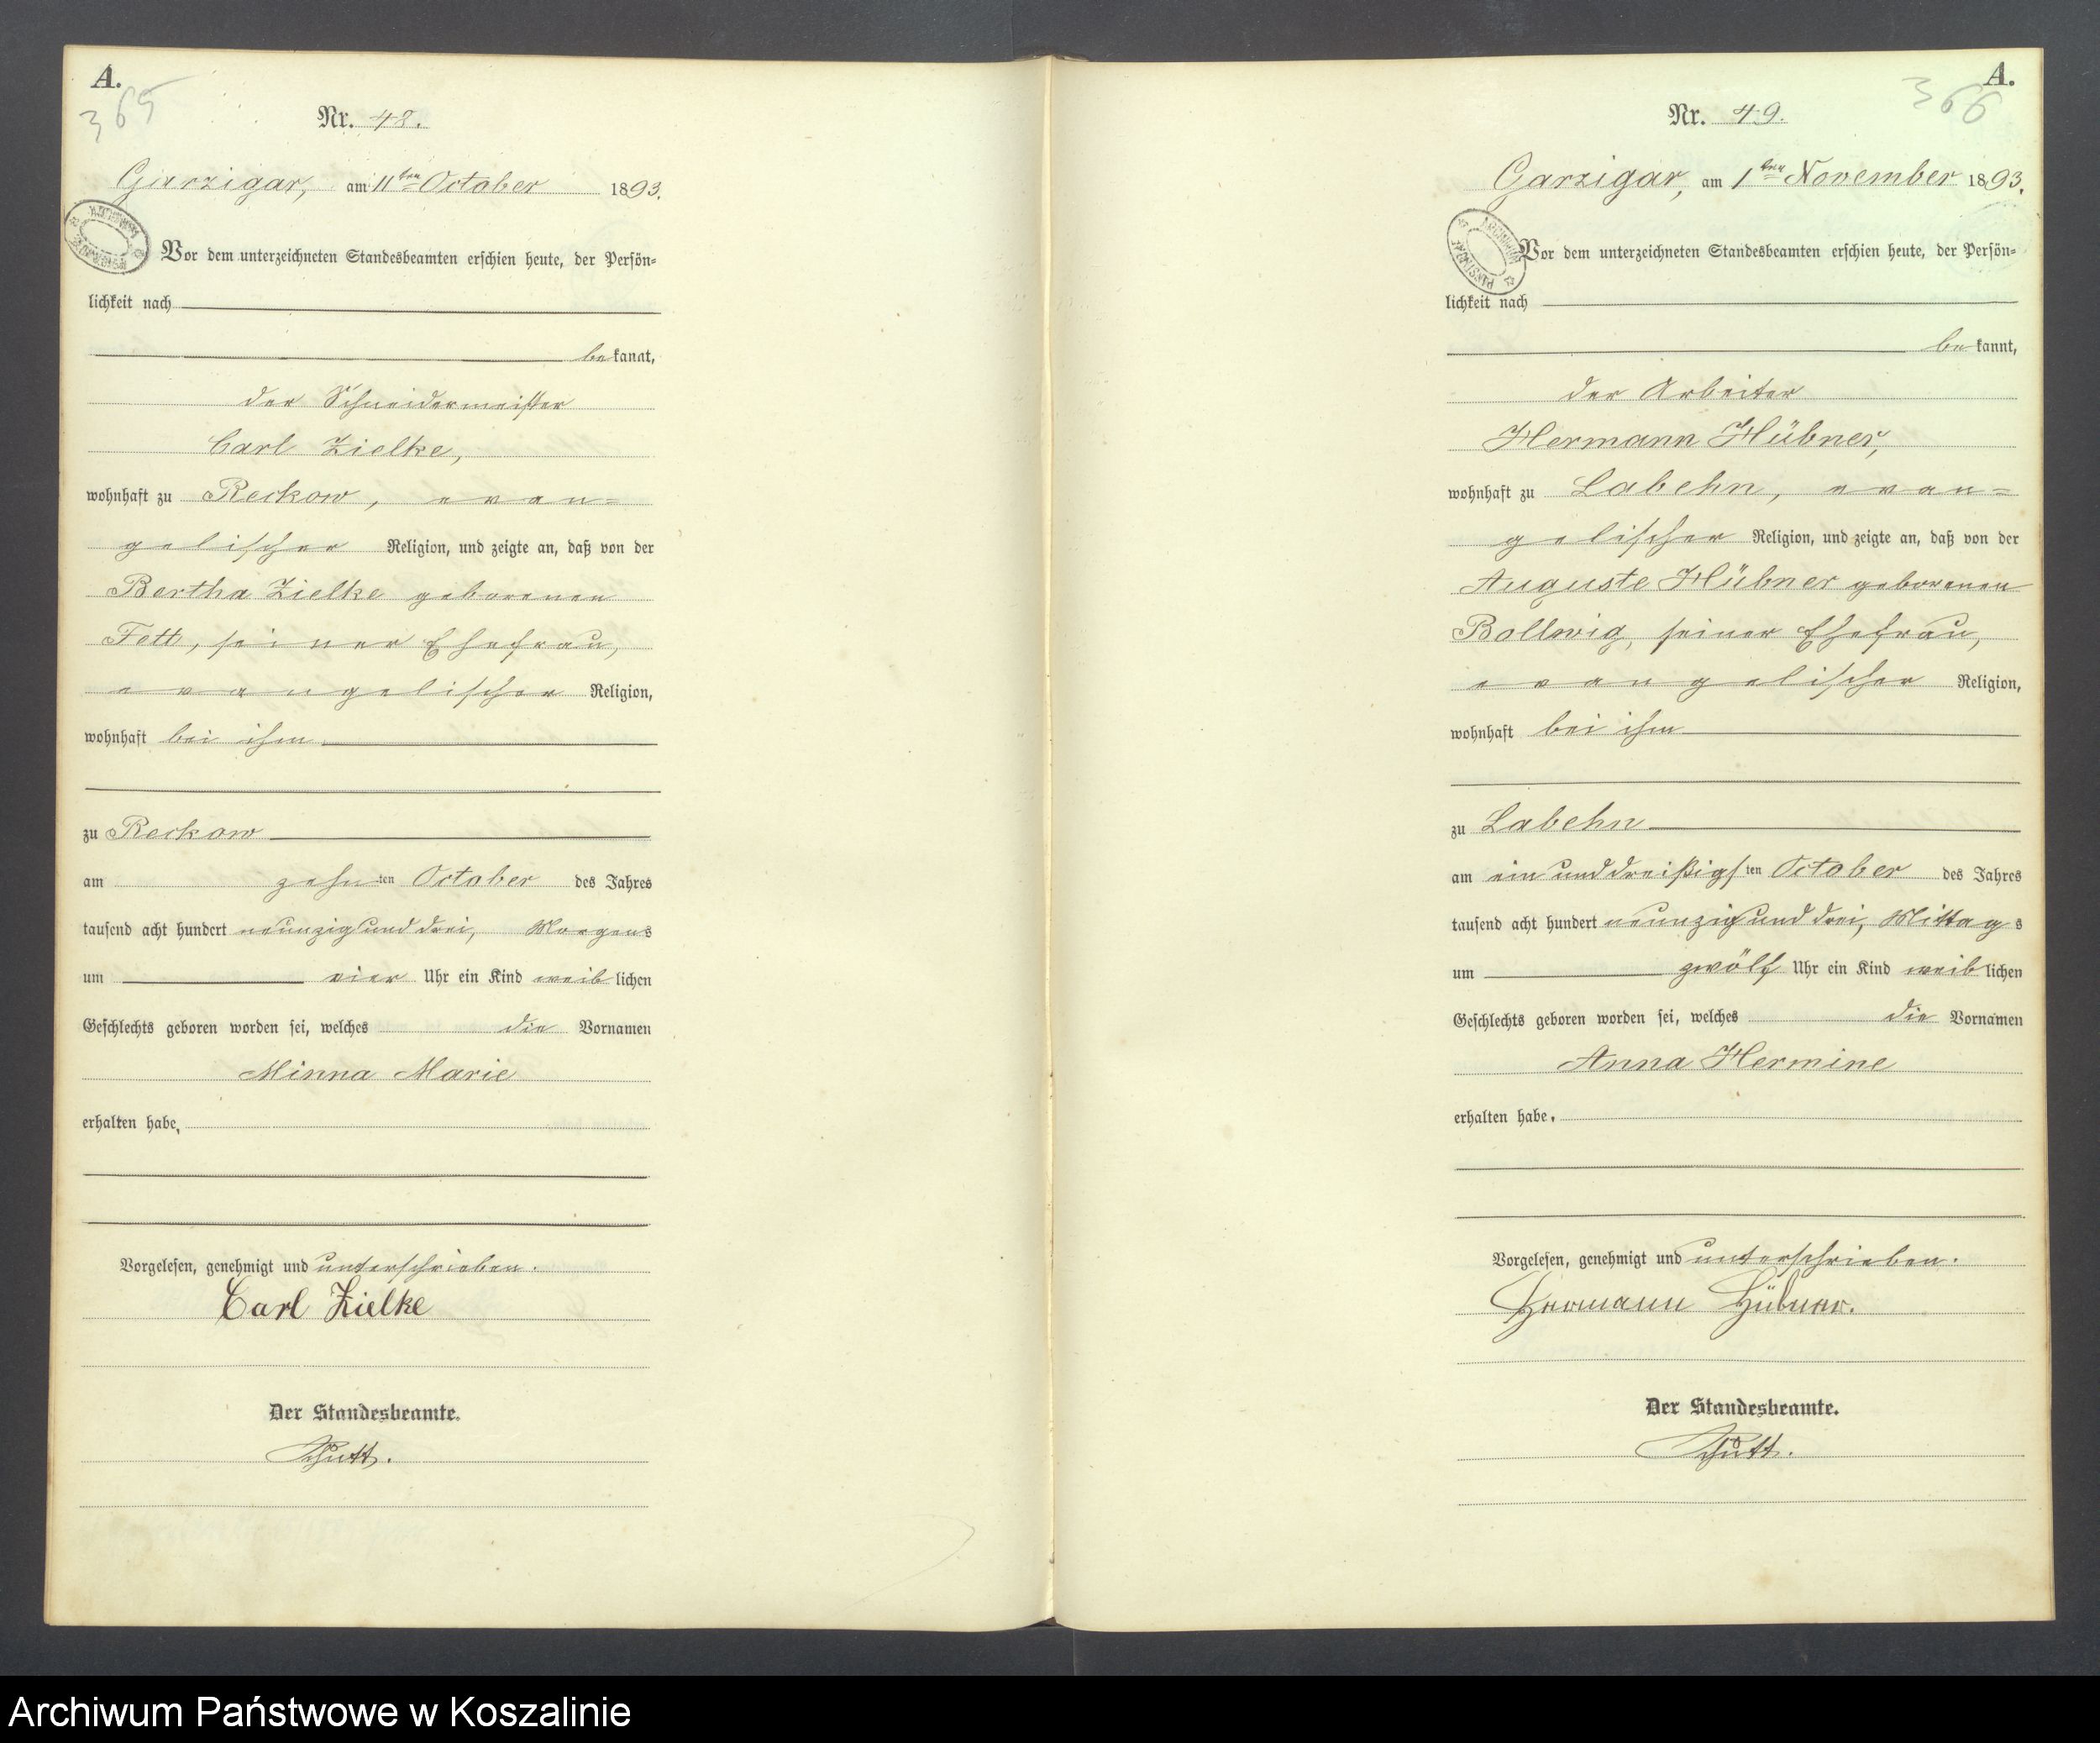 A.
365
Nr. 48.
Garzigar, am 11ten October 1893.
Vor dem unterzeichneten Standesbeamten erschien heute, der Persön-
lichkeit nach
bekannt,
der Schneidermeister
Carl Zielke,
wohnhaft zu Reckow, evan-
gelischer Religion, und zeigte an, daß von der
Bertha Zielke geborenen
Fett, seiner Ehefrau,
evangelischer Religion,
wohnhaft bei ihm
zu Reckow
am zehnten October des Jahres
tausend acht hundert neunzig und drei, Morgens
um vier Uhr ein Kind weiblichen
Geschlechts geboren worden sei, welches die Vornamen
Minna Marie
erhalten habe.
Vorgelesen, genehmigt und unterschrieben.
Carl Zielke
Der Standesbeamte.
A.
366
Nr. 49.
Garzigar, am 1ten November 1893.
ARCHIWUM PAŃSTWOWE
Vor dem unterzeichneten Standesbeamten erschien heute, der Persön-
lichkeit nach
bekannt,
der Arbeiter
Hermann Hübner,
wohnhaft zu Labehn, evan-
gelischer Religion, und zeigte an, daß von der
Auguste Hübner geborenen
Bollwig, seiner Ehefrau,
evangelischer Religion,
wohnhaft bei ihm
zu Labehn
am ein und dreißigsten October des Jahres
tausend acht hundert neunzig und drei, Mittags
um zwölf Uhr ein Kind weiblichen
Geschlechts geboren worden sei, welches die Vornamen
Anna Hermine
erhalten habe.
Vorgelesen, genehmigt und unterschrieben.
Hermann Hübner.
Der Standesbeamte.
Archiwum Państwowe w Koszalinie